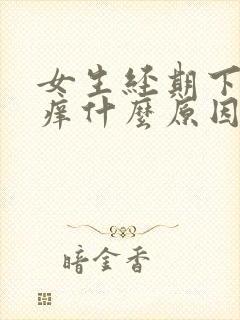 女生经期下
痒什麼原因
暗金香